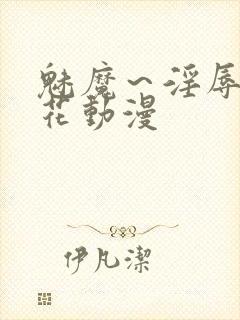 魅魔~淫辱
花動漫
伊凡潔